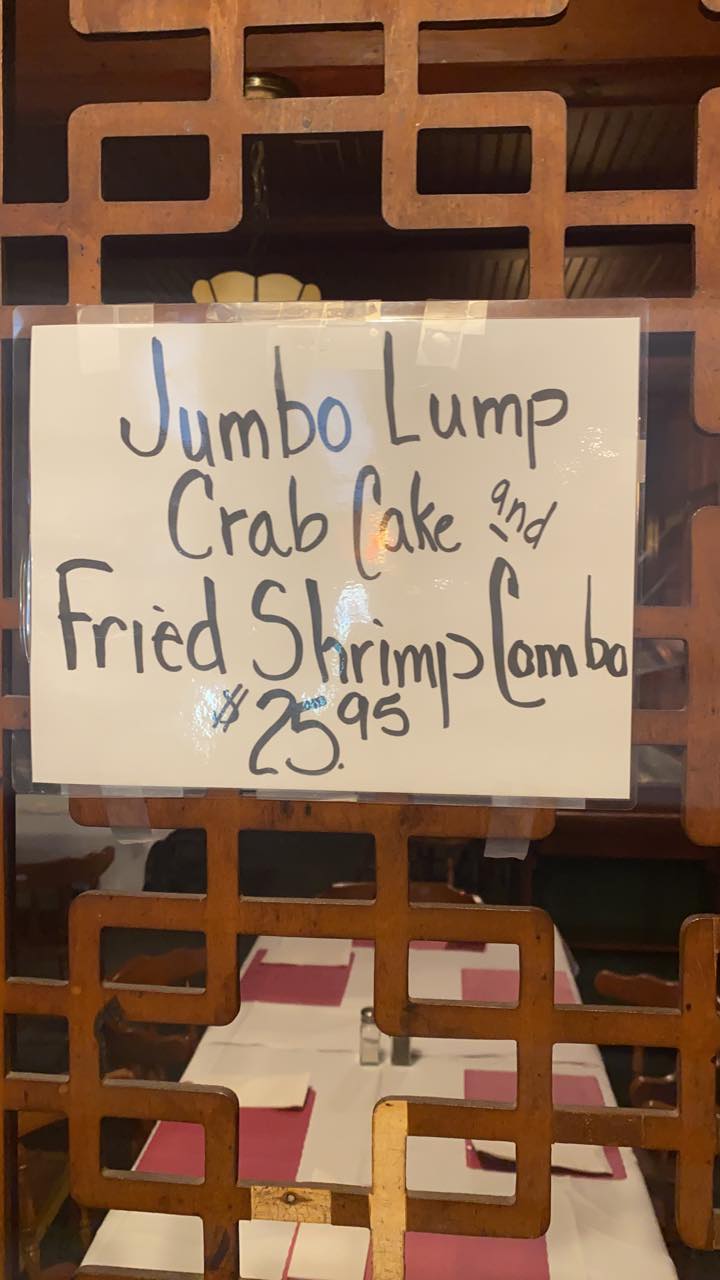 Jumbo Lump
Crab Cake and
Fried Shrimp Combo
$25.95